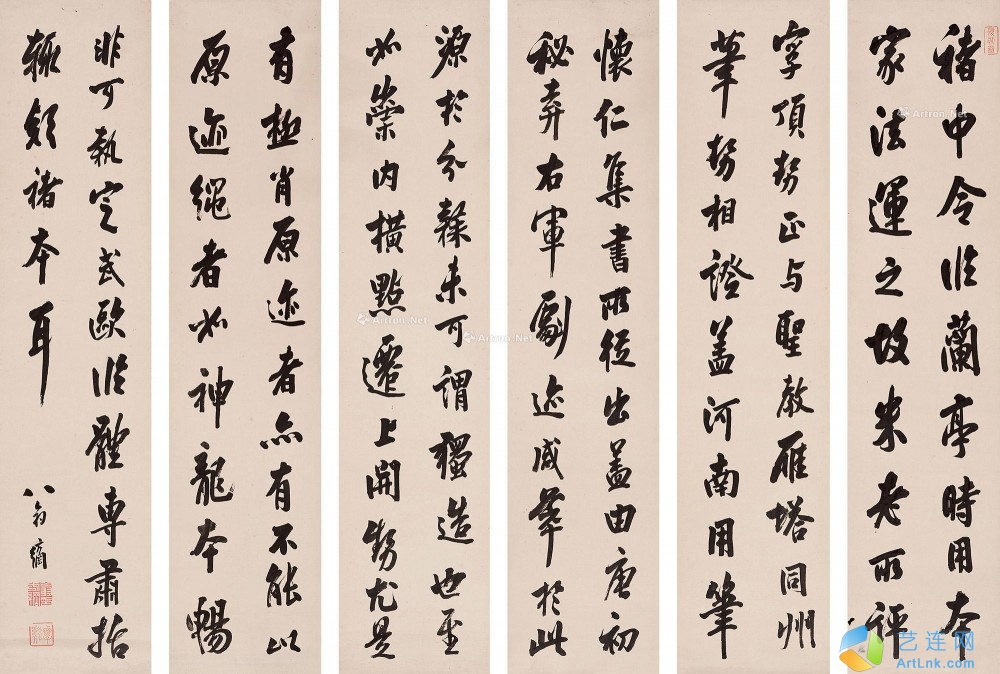 褚中令臨蘭亭時用本
家法運之故米老所評
字頂勢正与聖教雁塔同州
筆勢相證蓋河南用筆
懷仁集書所從出蓋由唐初
秘弆右軍劇迹咸萃於此
源於分隸未可謂獨造也至
如崇内橫點遷上開勢尤是
有極肖原迹者亦有不能以
原迹繩者如神龍本暢
非可執定武歐臨體專肅括
輒褚本耳
Artron.Net
Artron.Net
Artron.Net
艺连网
ArtLnk.com